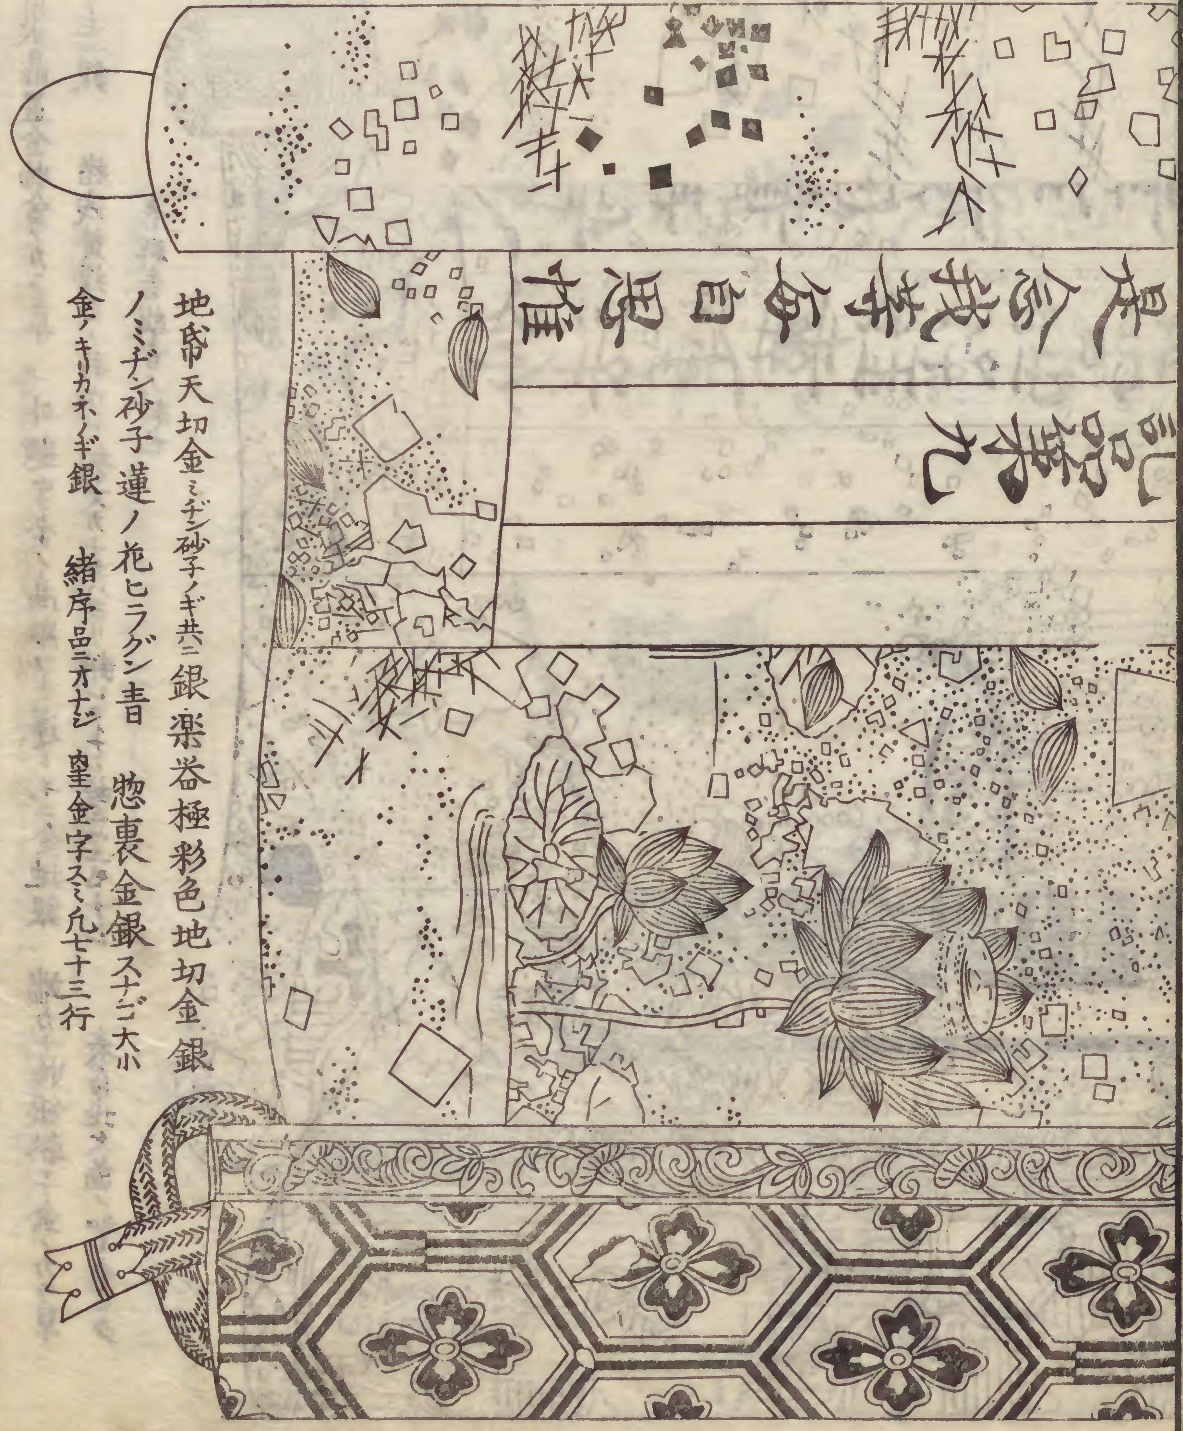 記品第九
是念我等毎自思惟
地帋天切金ミヂン砂子ノギ共ニ銀楽器極彩色地切金銀
ノミヂン砂子蓮ノ花ヒラグン青　惣裏金銀スナゴ大小
金ノキリカネノギ銀　緒序品ニオナジ　金字スミ凡七十三行